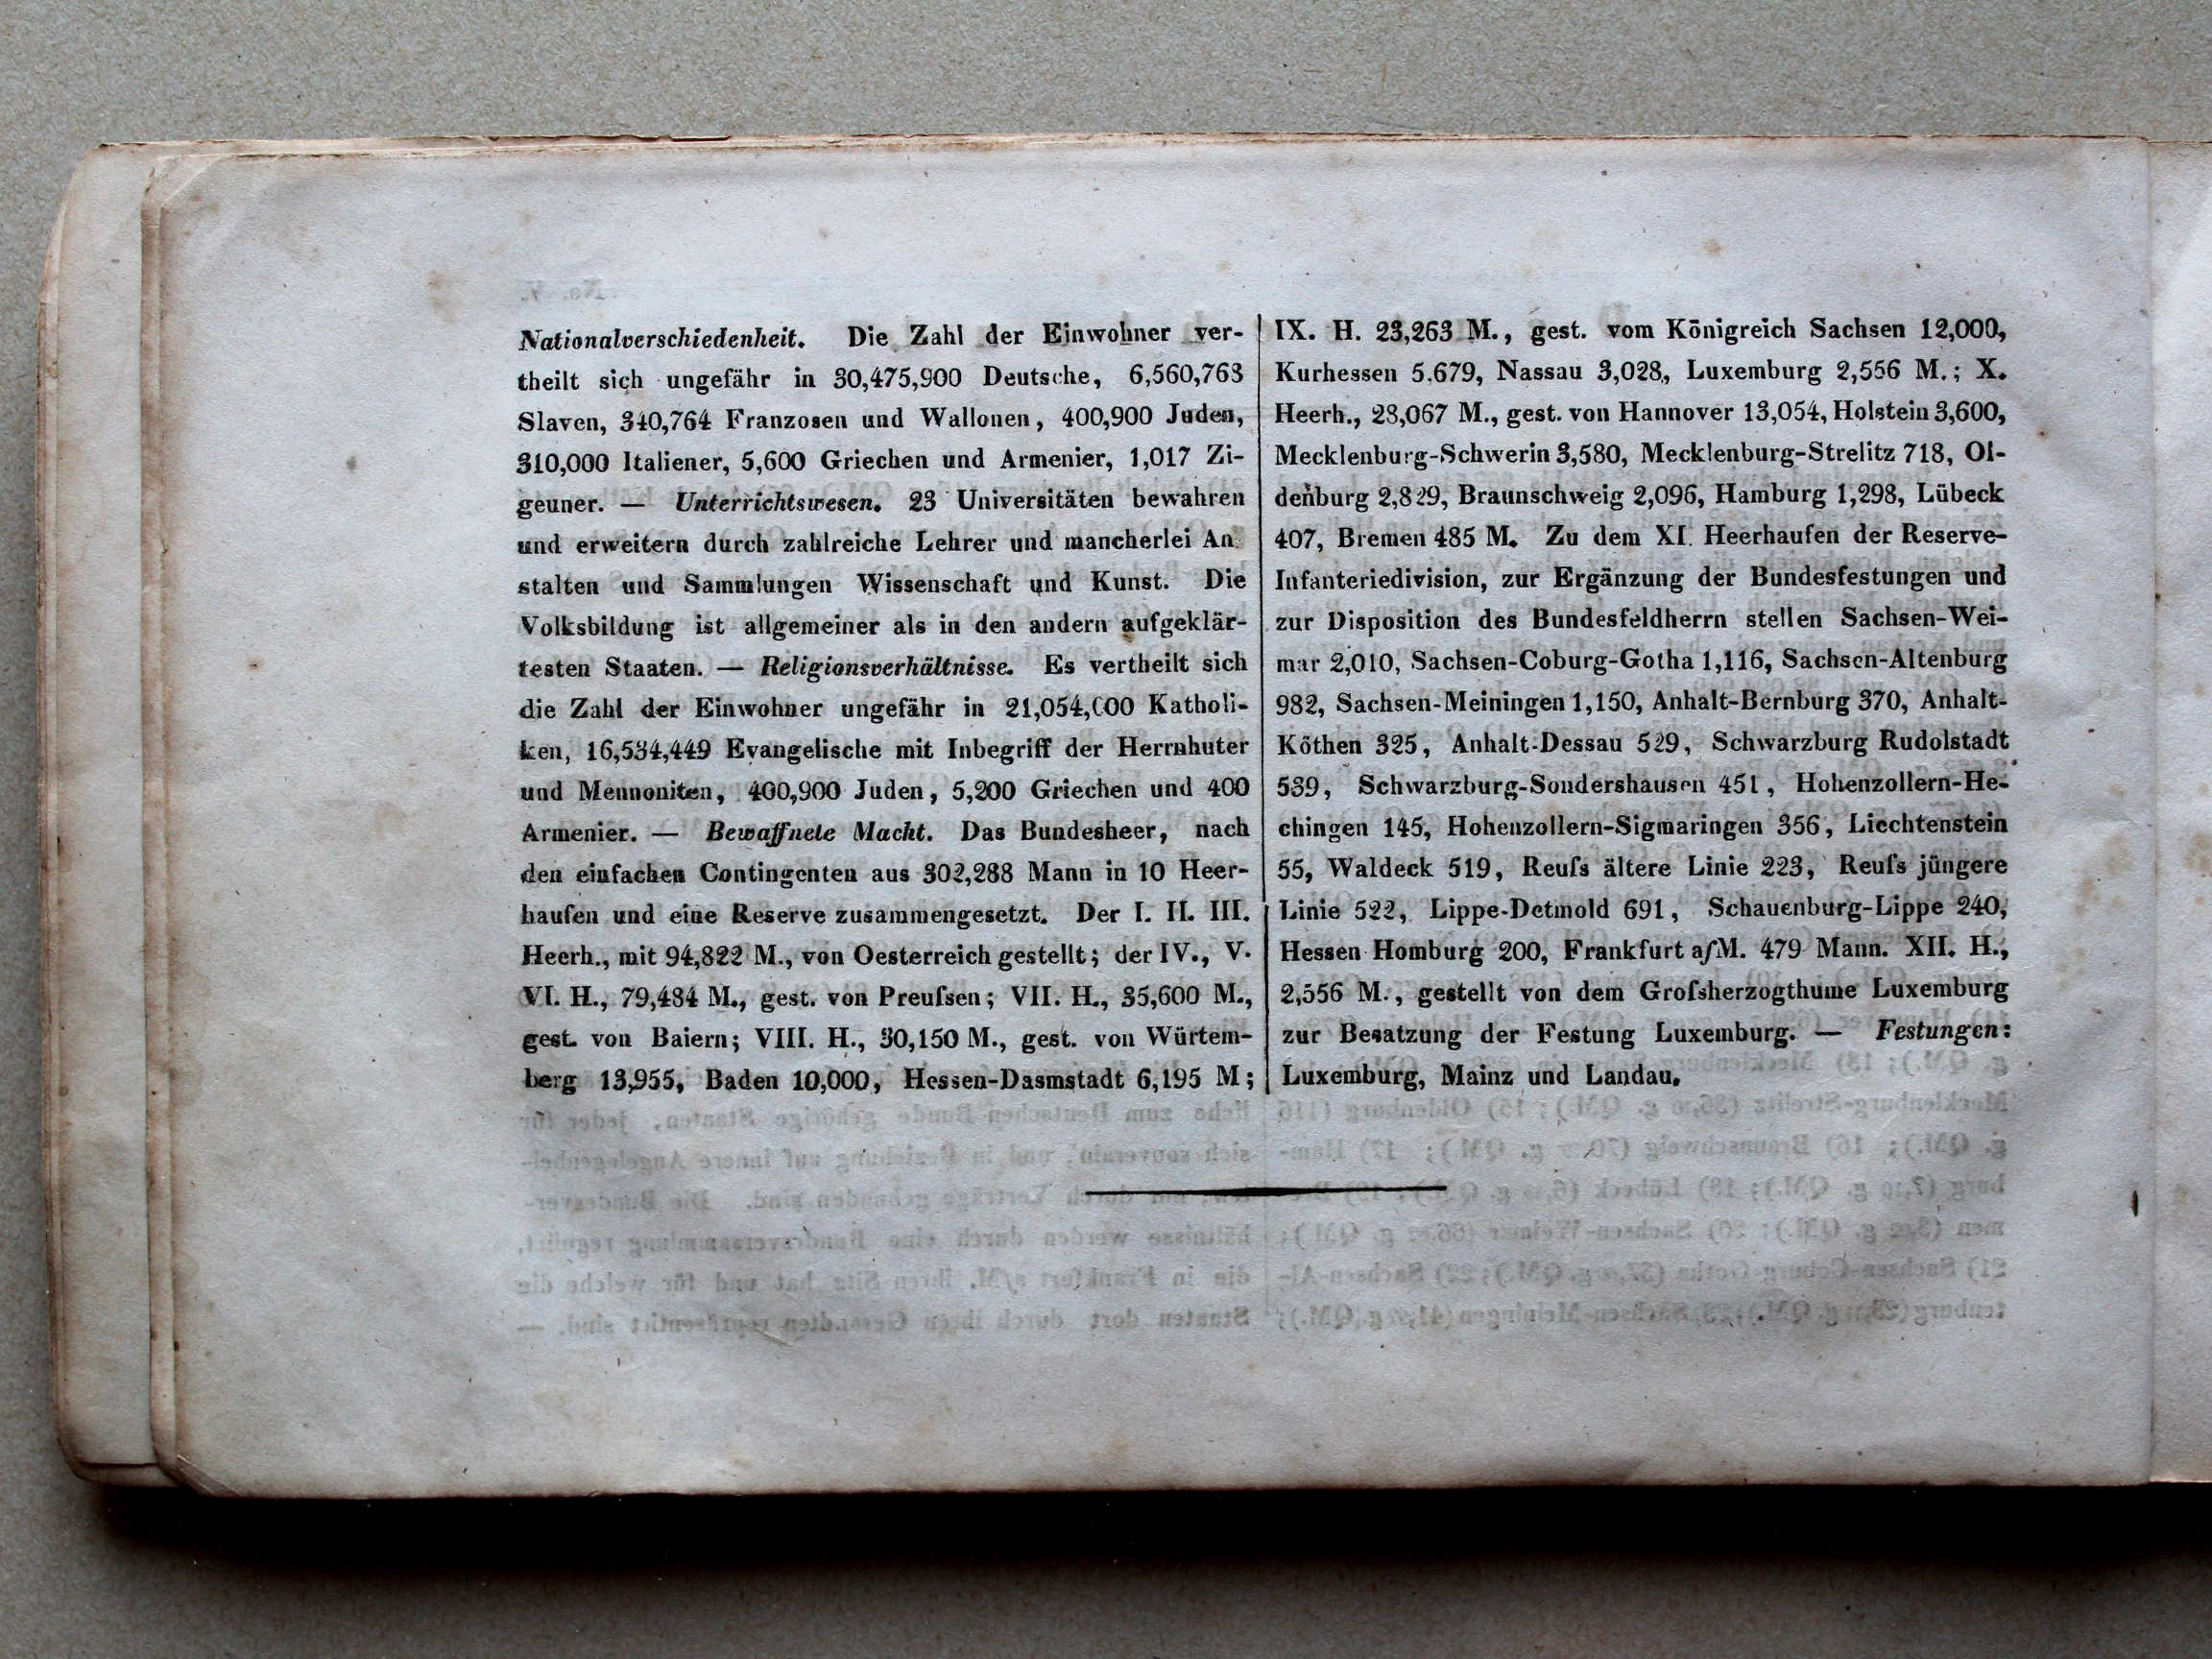 Nationalverschiedenheit. Die Zahl der Einwohner ver-
theilt sich ungefähr in 30,475,900 Deutsche, 6,560,763
Slaven, 340,764 Franzosen und Wallonen, 400,900 Juden,
310,000 Italiener, 5,600 Griechen und Armenier, 1,017 Zi-
geuner. — Unterrichtswesen. 23 Universitäten bewahren
und erweitern durch zahlreiche Lehrer und mancherlei An
stalten und Sammlungen Wissenschaft und Kunst. Die
Volksbildung ist allgemeiner als in den andern aufgeklär-
testen Staaten. — Religionsverhältnisse. Es vertheilt sich
die Zahl der Einwohner ungefähr in 21,054,000 Katholi-
ken, 16,534,449 Evangelische mit Inbegriff der Herrnhuter
und Mennoniten, 400,900 Juden, 5,200 Griechen und 400
Armenier. — Bewaffnete Macht. Das Bundesheer, nach
den einfachen Contingenten aus 302,288 Mann in 10 Heer-
haufen und eine Reserve zusammengesetzt. Der I. II. III.
Heerh., mit 94,822 M., von Oesterreich gestellt; der IV., V.
VI. H., 79,484 M., gest. von Preuſsen; VII. H., 35,600 M.,
gest. von Baiern; VIII. H., 30,150 M., gest. von Würtem-
berg 13,955, Baden 10,000, Hessen-Dasmstadt 6,195 M;
IX. H. 23,263 M., gest. vom Königreich Sachsen 12,000,
Kurhessen 5,679, Nassau 3,028, Luxemburg 2,556 M.; X.
Heerh., 28,067 M., gest. von Hannover 13,054, Holstein 3,600,
Mecklenburg-Schwerin 3,580, Mecklenburg-Strelitz 718, Ol-
denburg 2,829, Braunschweig 2,096, Hamburg 1,298, Lübeck
407, Bremen 485 M. Zu dem XI. Heerhaufen der Reserve-
Infanteriedivision, zur Ergänzung der Bundesfestungen und
zur Disposition des Bundesfeldherrn stellen Sachsen-Wei-
mar 2,010, Sachsen-Coburg-Gotha 1,116, Sachsen-Altenburg
982, Sachsen-Meiningen 1,150, Anhalt-Bernburg 370, Anhalt-
Köthen 325, Anhalt-Dessau 529, Schwarzburg Rudolstadt
539, Schwarzburg-Sondershausen 451, Hohenzollern-He-
chingen 145, Hohenzollern-Sigmaringen 356, Liechtenstein
55, Waldeck 519, Reuſs ältere Linie 223, Reuſs jüngere
Linie 522, Lippe-Detmold 691, Schauenburg-Lippe 240,
Hessen Homburg 200, Frankfurt a/M. 479 Mann. XII. H.,
2,556 M., gestellt von dem Groſsherzogthume Luxemburg
zur Besatzung der Festung Luxemburg. — Festungen:
Luxemburg, Mainz und Landau.